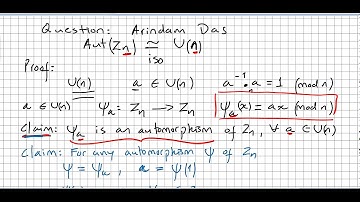 Question: Arindam Das
Aut(Zn) ≃ U(n)
iso
Proof:
U(n) a ∈ U(n) a⁻¹·a = 1 (mod n)
a ∈ U(n) Ψa: Zn → Zn Ψa(x) = ax (mod n)
Claim: Ψa is an automorphism of Zn, ∀ a ∈ U(n)
Claim: For any automorphism Ψ of Zn
Ψ = Ψa, a = Ψ(1)